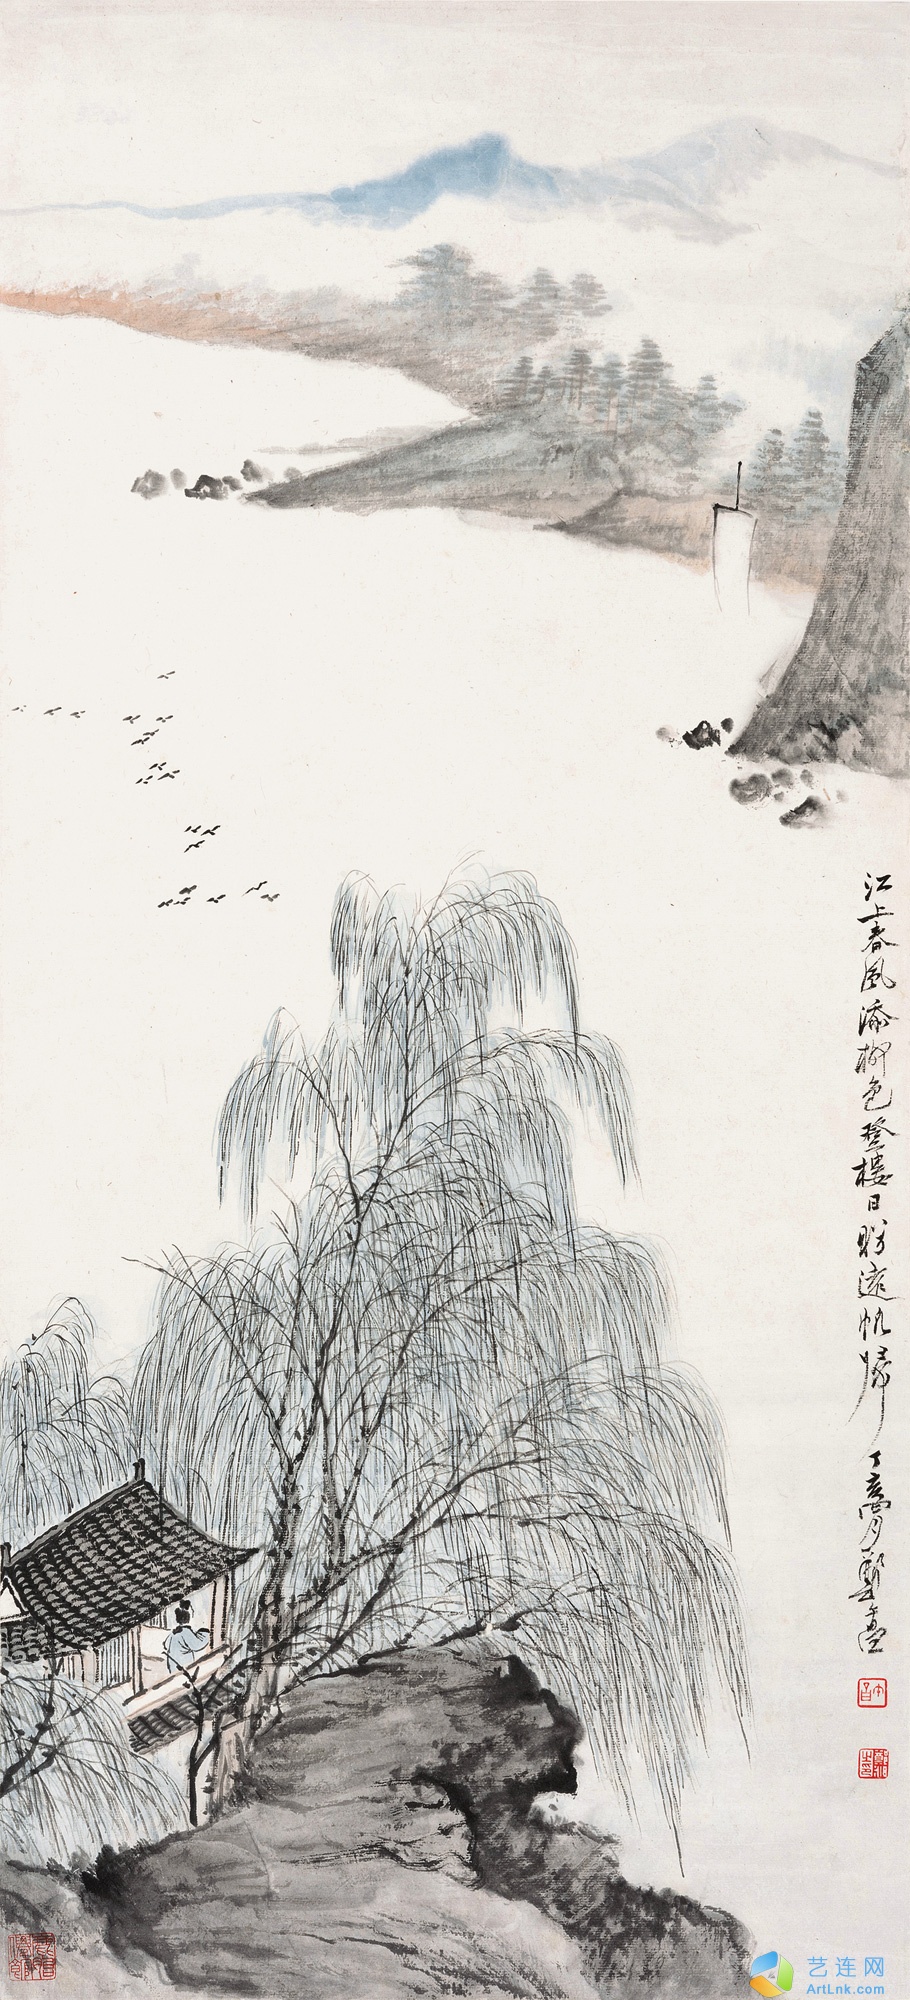 江上春風添柳色登樓日盼遠帆歸
丁亥

艺连网
ArtLnk.com